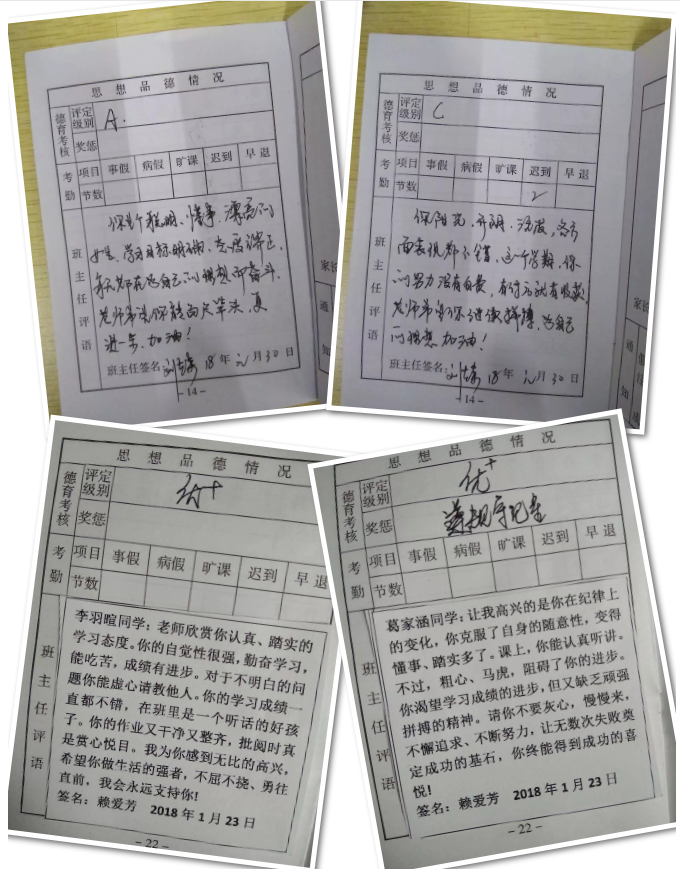 思想品德情况
德育考核
评定级别
A.
奖惩
考勤
项目 事假 病假 旷课 迟到 早退
节数
班主任评语
你是个聪明、懂事、漂亮的
女生,学习目标明确,态度端正,
每天都在为自己的理想而奋斗.
老师希望你能百尺竿头,更
进一步.加油!
班主任签名: 18年元月30日
-14-
家长
通
知
思想品德情况
德育考核
评定级别
C
奖惩
考勤
项目 事假 病假 旷课 迟到 早退
节数 2
班主任评语
你阳光,开朗,活泼,各方
面表现都不错,这个学期,你
的努力没有白费,有付出就有收获,
老师希望你继续拼搏,为自己
的理想加油!
班主任签名: 18年元月30日
-14-
家长
通
知
思想品德情况
德育考核
评定级别
优+
奖惩
考勤
项目 事假 病假 旷课 迟到 早退
节数
班主任评语
李羽暄同学:老师欣赏你认真、踏实的
学习态度。你的自觉性很强,勤奋学习,
能吃苦,成绩有进步。对于不明白的问
题你能虚心请教他人。你的学习成绩一
直都不错,在班里是一个听话的好孩
子。你的作业又干净又整齐,批阅时真
是赏心悦目。我为你感到无比的高兴,
希望你做生活的强者,不屈不挠、勇往
直前,我会永远支持你!
签名:赖爱芳 2018年1月23日
-22-
思想品德情况
德育考核
评定级别
优+
奖惩
考勤
项目 事假 病假 旷课 迟到 早退
节数
班主任评语
葛家涵同学:让我高兴的是你在纪律上
的变化,你克服了自身的随意性,变得
懂事、踏实多了。课上,你能认真听讲。
不过,粗心、马虎,阻碍了你的进步。
你渴望学习成绩的进步,但又缺乏顽强
拼搏的精神。请你不要灰心,慢慢来,
不懈追求、不断努力,让无数次失败奠
定成功的基石,你终能得到成功的喜
悦!
签名:赖爱芳 2018年1月23日
-22-